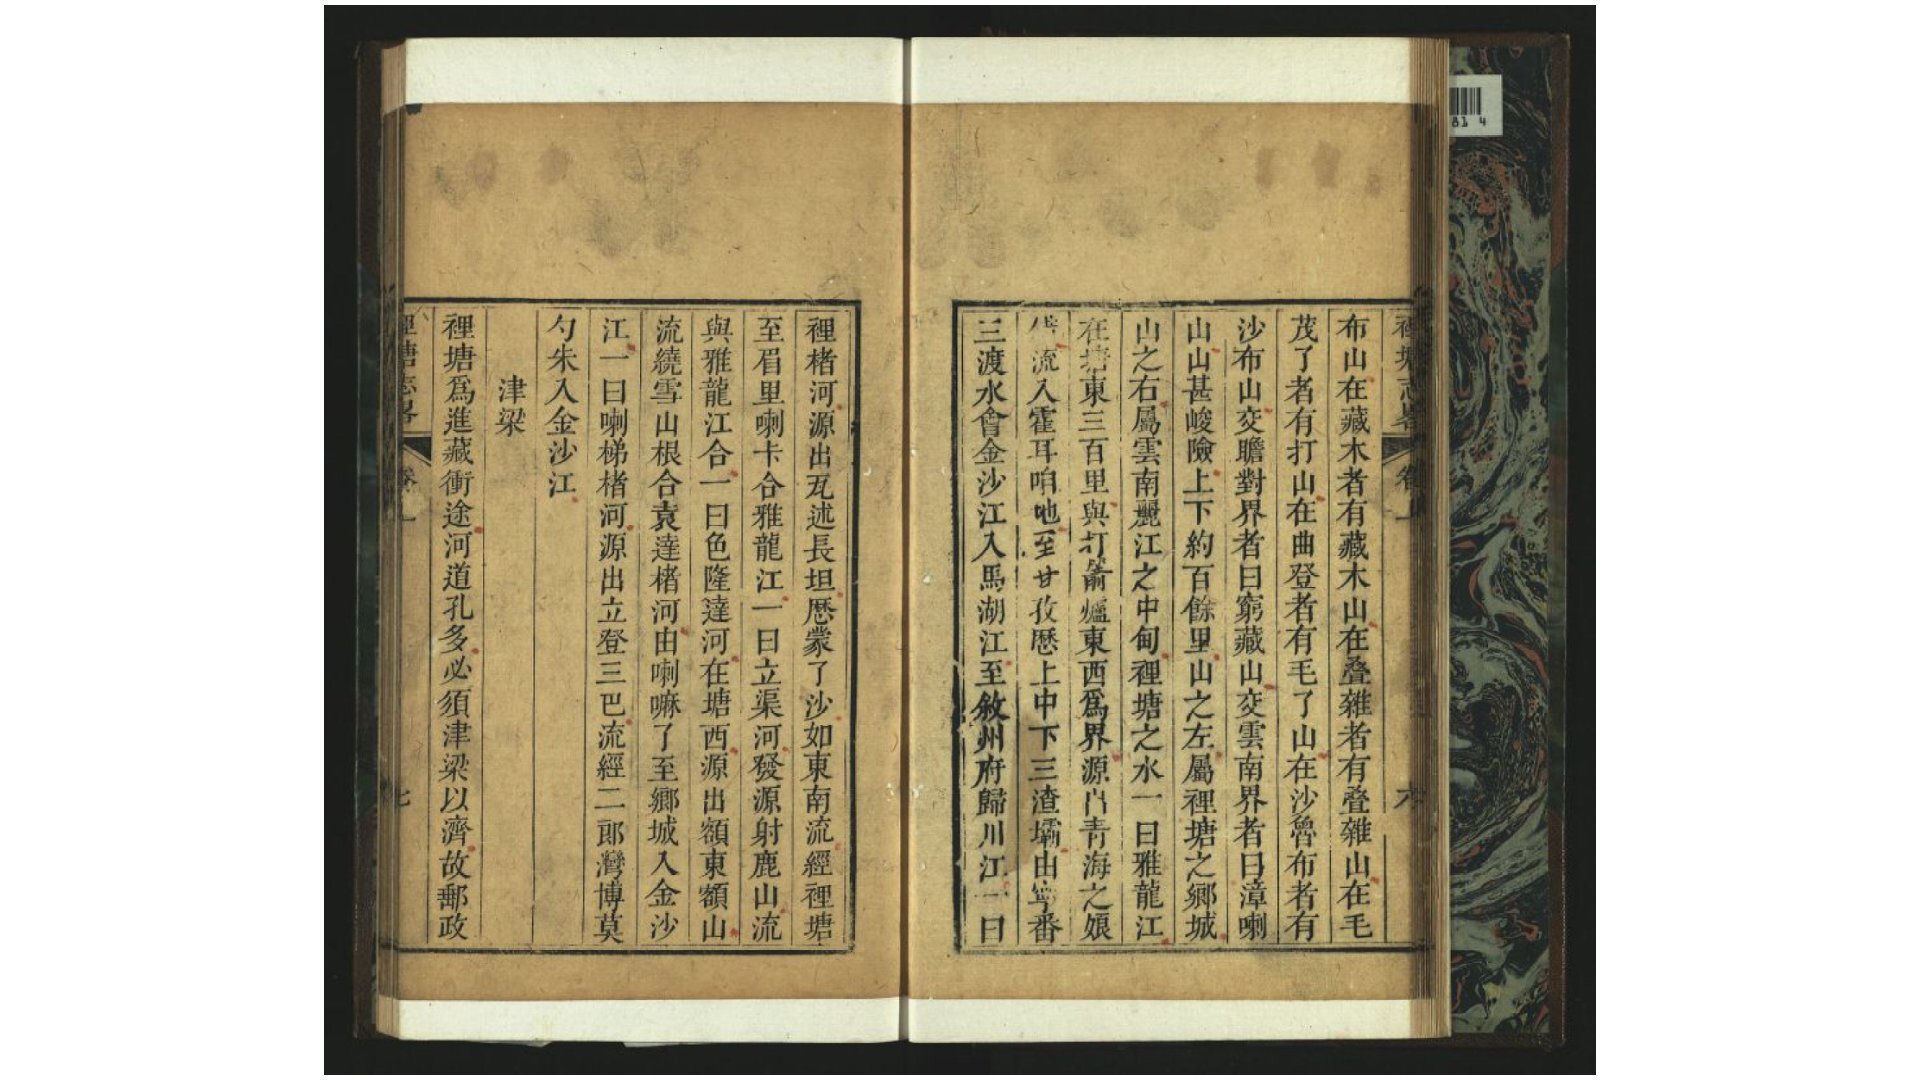 裡塘志畧
卷上
六
布山在藏木者有藏木山在叠雜者有叠雜山在毛
茂了者有打山在曲登者有毛了山在沙魯布者有
沙布山交瞻對界者曰窮藏山交雲南界者曰漳喇
山山甚峻險上下約百餘里山之左屬裡塘之鄉城
山之右屬雲南麗江之中甸裡塘之水一曰雅龍江
在塘東三百里與打箭爐東西爲界源出青海之娘
流入霍耳咱地至甘孜歷上中下三渣壩由寧番
三渡水會金沙江入馬湖江至敘州府歸川江一曰
裡楮河源出瓦述長坦歷蒙了沙如東南流經裡塘
至眉里喇卡合雅龍江一曰立渠河發源射鹿山流
與雅龍江合一曰色隆達河在塘西源出額東額山
流繞雪山根合袁達楮河由喇嘛了至鄉城入金沙
江一曰喇梯楮河源出立登三巴流經二郎灣博莫
勺朱入金沙江
津梁
裡塘爲進藏衝途河道孔多必須津梁以濟故郵政
裡塘志畧
卷上
七
81 4